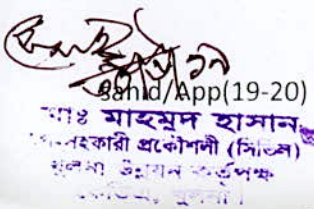 sahid/App(19-20)
মোঃ মাহমুদ হাসান
সহকারী প্রকৌশলী (সিভিল)
খুলনা উন্নয়ন কর্তৃপক্ষ
কেডিএ, খুলনা।